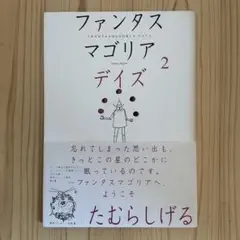 ファンタス
マゴリア
デイズ
2
忘れてしまった思い出も、
きっとこの星のどこかに
眠っているのです。
ファンタスマゴリアへ、
ようこそ
たむらしげる